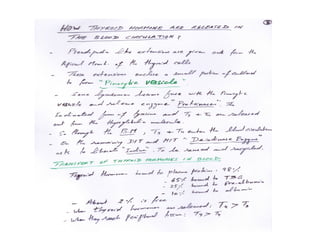 HOW THYROID HORMONE ARE RELEASED IN
THE BLOOD CIRCULATION?
- Pseudopodia like extensions are given out from the
Apical Memb. of the thyroid cells
- These extensions enclose a small portion of colloid
to form "Pinocytic VESICLE"
- Some lysosomes fuse with the Pinocytic
VESICLE and release enzyme "Proteases". The
form of Tyrosine and T3 + T4 are released
out from the thyroglobulin molecule.
- So through the B.M, T3 + T4 enter the blood circulation
- On the remaining DIT and MIT "Deiodinase Enzyme"
acts to liberate "Iodine". To be reused and recycled.
TRANSPORT OF THYROID HORMONES IN BLOOD
Thyroid Hormone bound to plasma protein : 98%
- 65% bound to TBG
- 25% bound to Pre-albumin
- 10% bound to albumin
- About 2% is free
- When thyroid hormones are released; T4 > T3
- When they reach peripheral tissue; T3 > T4